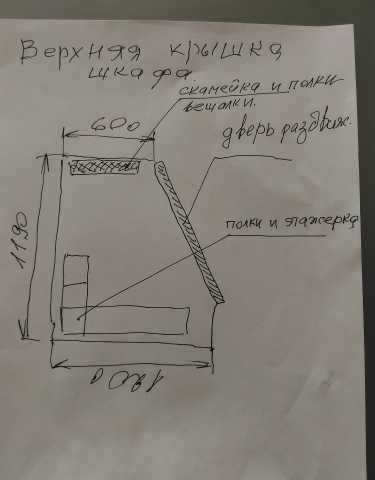 Верхняя крышка
шкафа
скамейка и полки
вешалки.
600
дверь раздвиж.
1190
полки и этажерка
1200